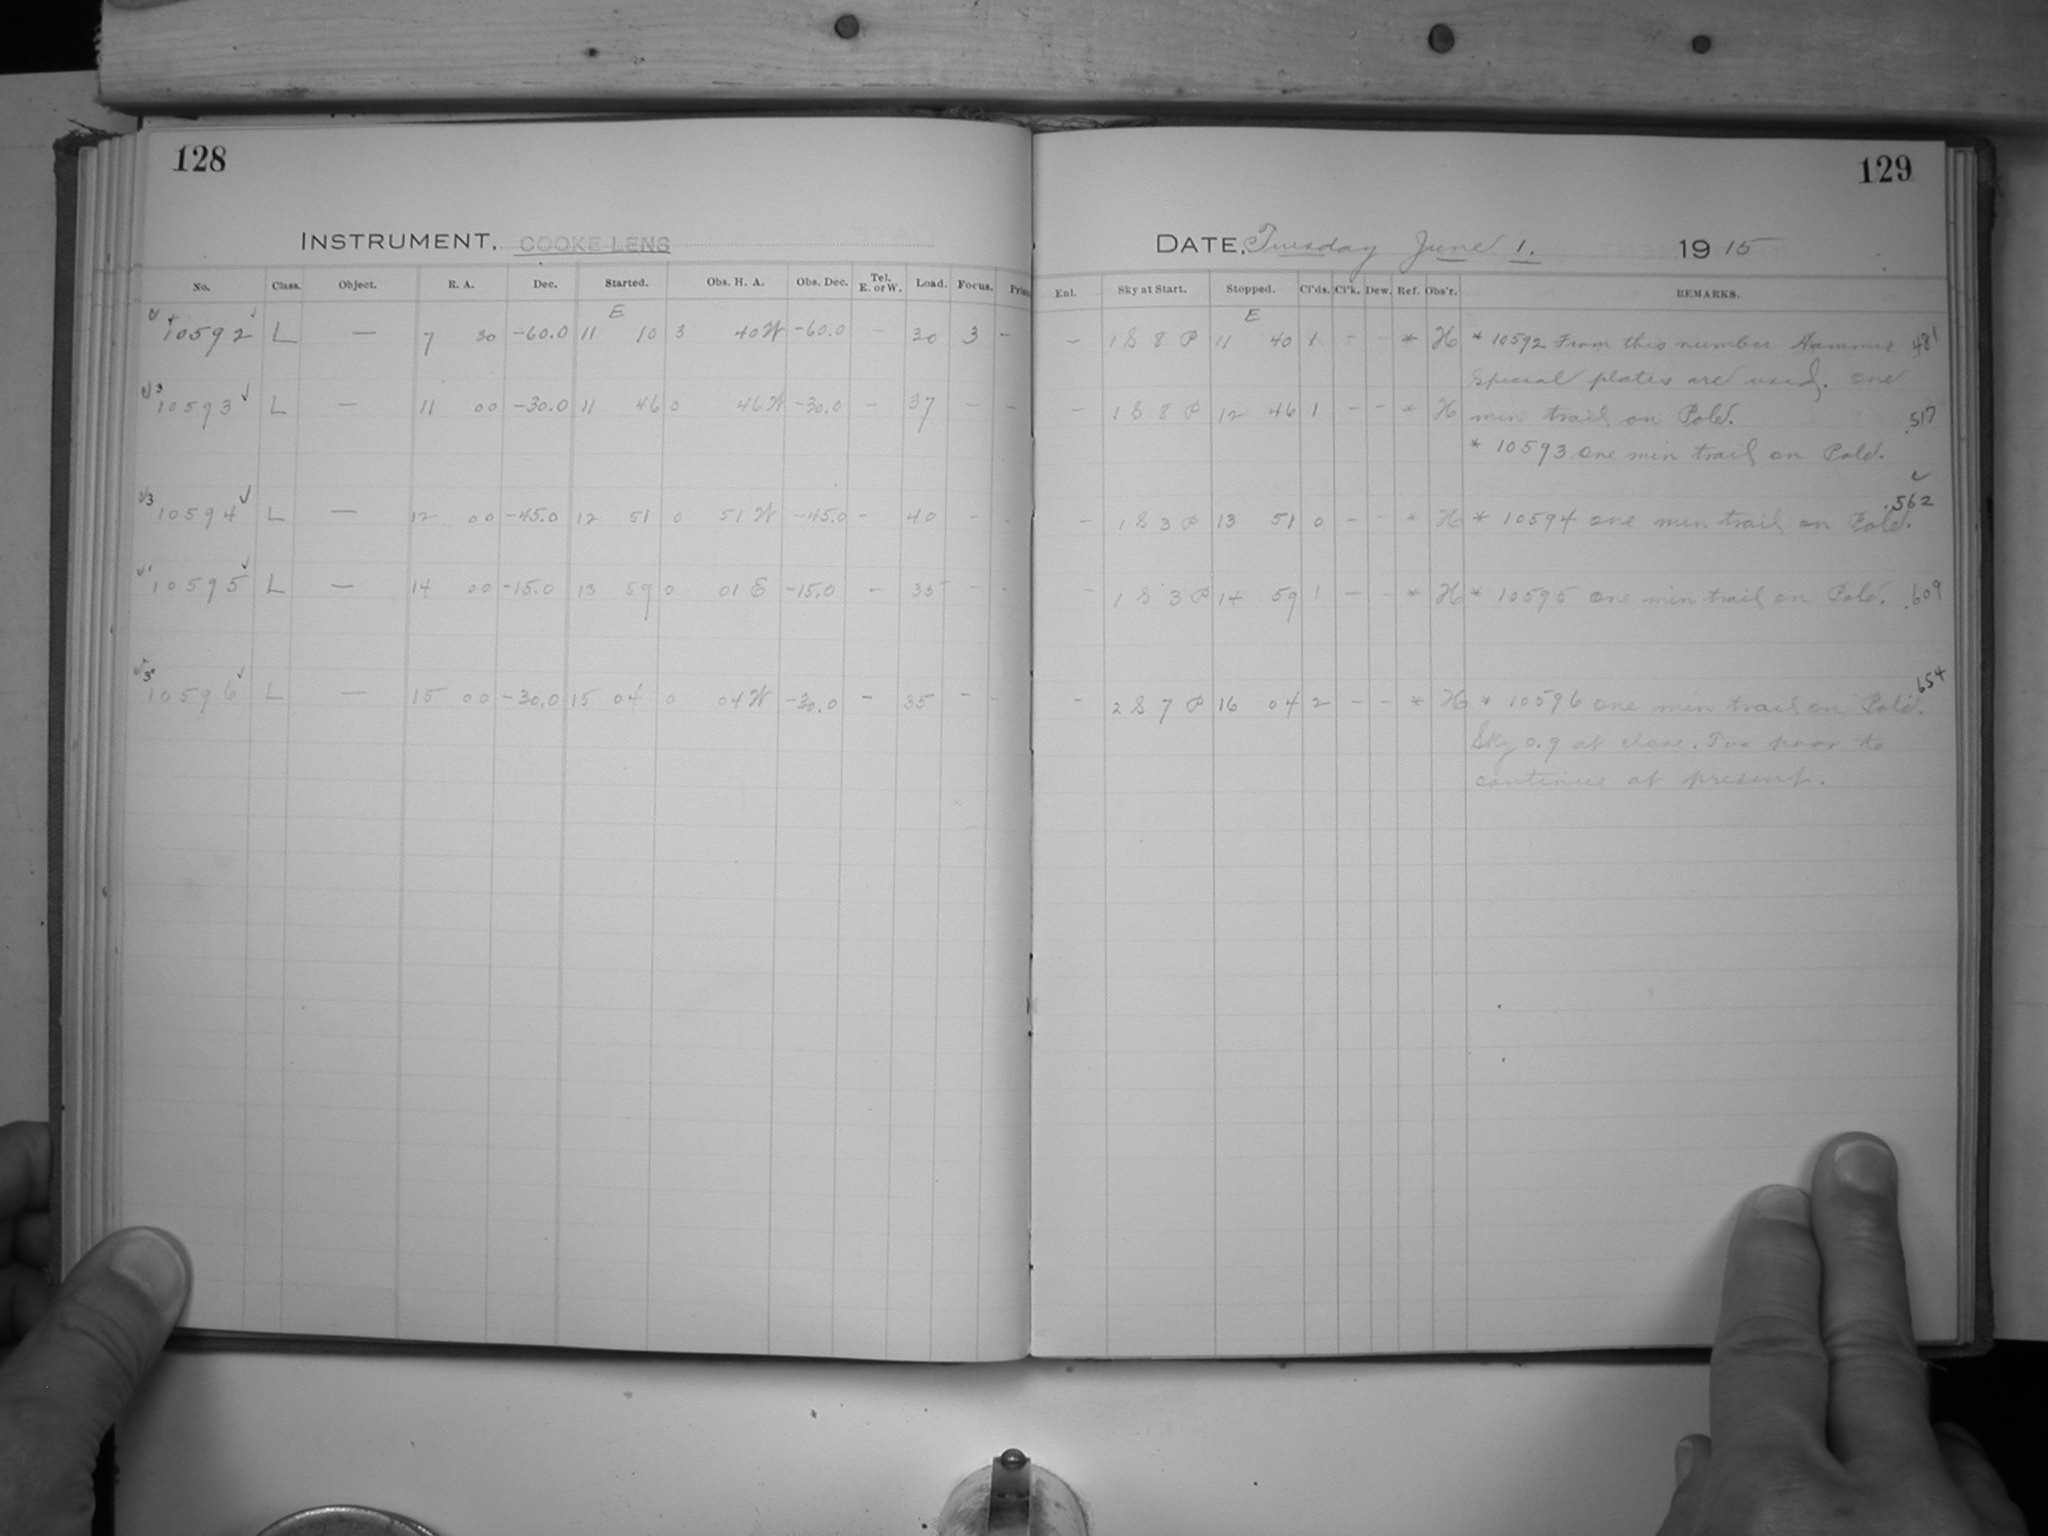 128
129
INSTRUMENT, COOKE LENS
DATE, Tuesday June 1. 1915
No. Class. Object. R. A. Dec. Started. Obs. H. A. Obs. Dec. Tel. E. or W. Load. Focus.
Enl. Sky at Start. Stopped. Cl'ds. Cl'k. Dew. Ref. Obs'r. REMARKS.
E
E
10592 L — 7 30 -60.0 11 10 3 40 W -60.0 – 30 3 –
– 1 S 8 P 11 40 1 – – * H * 10592 From this number Hammer 481
special plates are used. One
10593 L — 11 00 -30.0 11 46 0 46 W -30.0 – 37 – –
– 1 S 8 P 12 46 1 – – * H min trail on Pole. .517
* 10593 one min trail on Pole.
10594 L — 12 00 -45.0 12 51 0 51 W -45.0 – 40 – –
– 1 S 3 P 13 51 0 – – * H * 10594 one min trail on Pole. .562
10595 L — 14 00 -15.0 13 59 0 01 E -15.0 – 35 – –
– 1 S 3 P 14 59 1 – – * H * 10595 one min trail on Pole. .609
10596 L — 15 00 -30.0 15 04 0 04 W -30.0 – 35 – –
– 2 S 7 P 16 04 2 – – * H * 10596 one min trail on Pole. 654
Sky 0.9 at close. Too poor to
continue at present.